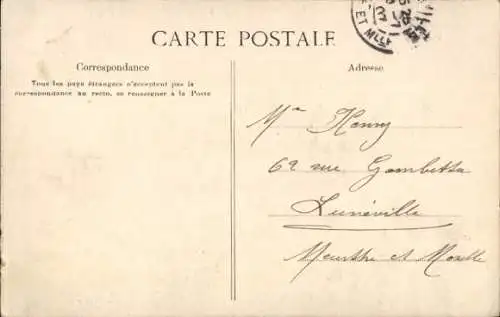 CARTE POSTALE
Correspondance
Tous les pays étrangers n'acceptent pas la
correspondance au recto, se renseigner à la Poste
Adresse
ET M
Mme Henry
62 rue Gambetta
Lunéville
Meurthe et Moselle